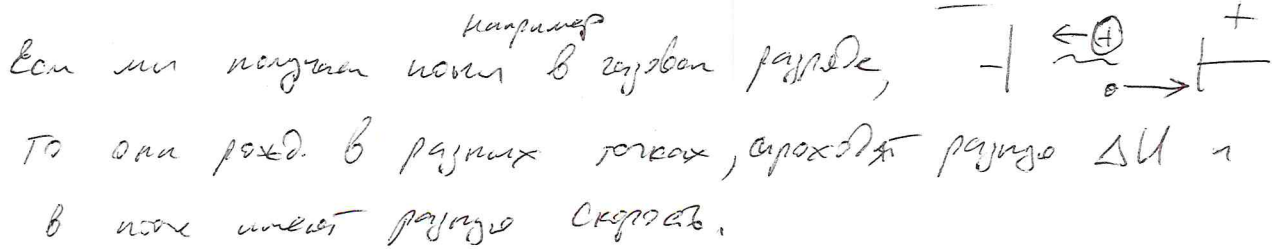 например
Если мы получаем ионы в газовом разряде,
то они рожд. в разных точках, проходят разную ΔU и
в итоге имеют разную скорость.